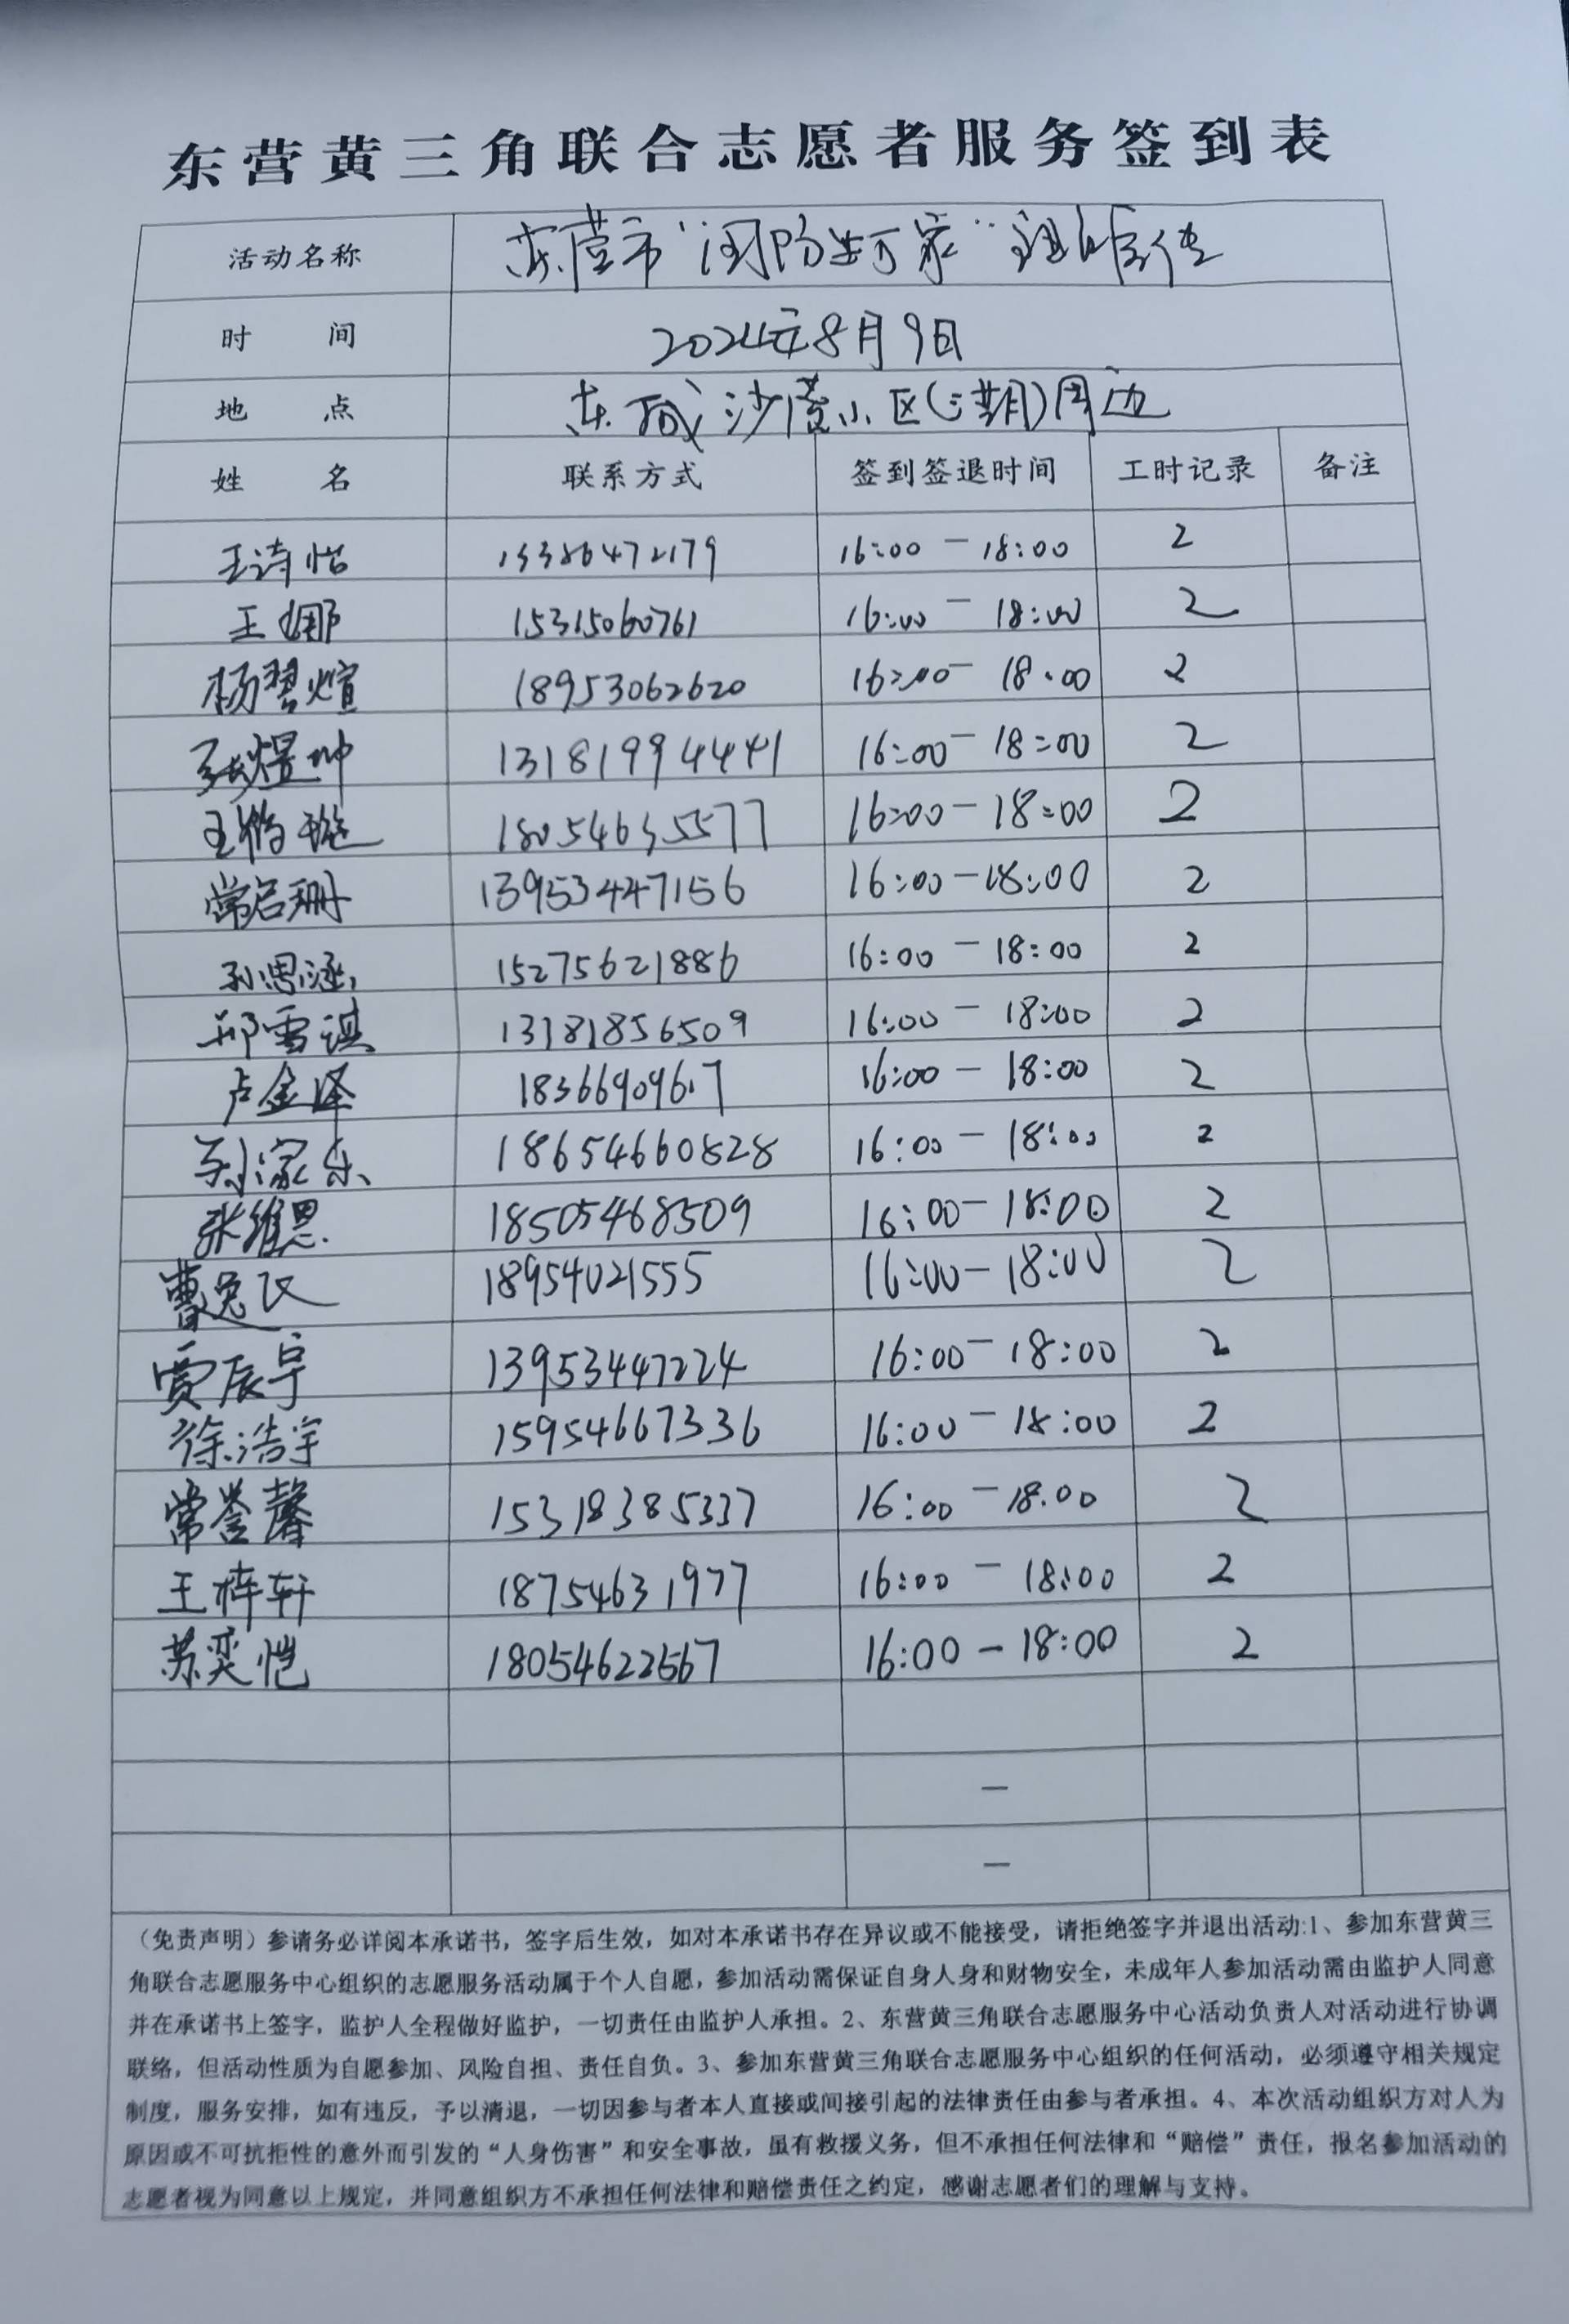 东营黄三角联合志愿者服务签到表
活动名称 东营市“国防好家”
时 间 2024年8月9日
地 点 东城沙营小区(三期)周边
姓 名 联系方式 签到签退时间 工时记录 备注
王诗怡 13386472179 16:00-18:00 2
王娜 15315060761 16:00-18:00 2
杨碧煊 18953062620 16:00-18:00 2
张煜坤 13181994441 16:00-18:00 2
王 18054635577 16:00-18:00 2
常启珊 13953447156 16:00-18:00 2
孙思涵 15275621886 16:00-18:00 2
邢雪琪 13181856509 16:00-18:00 2
卢金泽 18366909617 16:00-18:00 2
家乐 18654660828 16:00-18:00 2
张维恩 18505468509 16:00-18:00 2
曹逸飞 18954021555 16:00-18:00 2
贾辰宇 13953447224 16:00-18:00 2
徐浩宇 15954667336 16:00-18:00 2
常誉馨 15318385337 16:00-18.00 2
王梓轩 18754631977 16:00-18:00 2
苏奕恺 18054622567 16:00-18:00 2
—
—
（免责声明）参请务必详阅本承诺书，签字后生效，如对本承诺书存在异议或不能接受，请拒绝签字并退出活动:1、参加东营黄三
角联合志愿服务中心组织的志愿服务活动属于个人自愿，参加活动需保证自身人身和财物安全，未成年人参加活动需由监护人同意
并在承诺书上签字，监护人全程做好监护，一切责任由监护人承担。2、东营黄三角联合志愿服务中心活动负责人对活动进行协调
联络，但活动性质为自愿参加、风险自担、责任自负。3、参加东营黄三角联合志愿服务中心组织的任何活动，必须遵守相关规定
制度，服务安排，如有违反，予以清退，一切因参与者本人直接或间接引起的法律责任由参与者承担。4、本次活动组织方对人为
原因或不可抗拒性的意外而引发的“人身伤害”和安全事故，虽有救援义务，但不承担任何法律和“赔偿”责任，报名参加活动的
志愿者视为同意以上规定，并同意组织方不承担任何法律和赔偿责任之约定，感谢志愿者们的理解与支持。